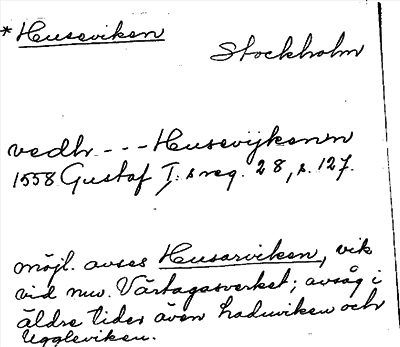 * Huseviken
Stockholm
vedh - - - Husevijkenn
1558 Gustaf I:s reg. 28, s. 127.
möjl. avses Husarviken, vik
vid nuv. Värtagasverket; avsåg i
äldre tider även Laduviken och
Uggleviken.